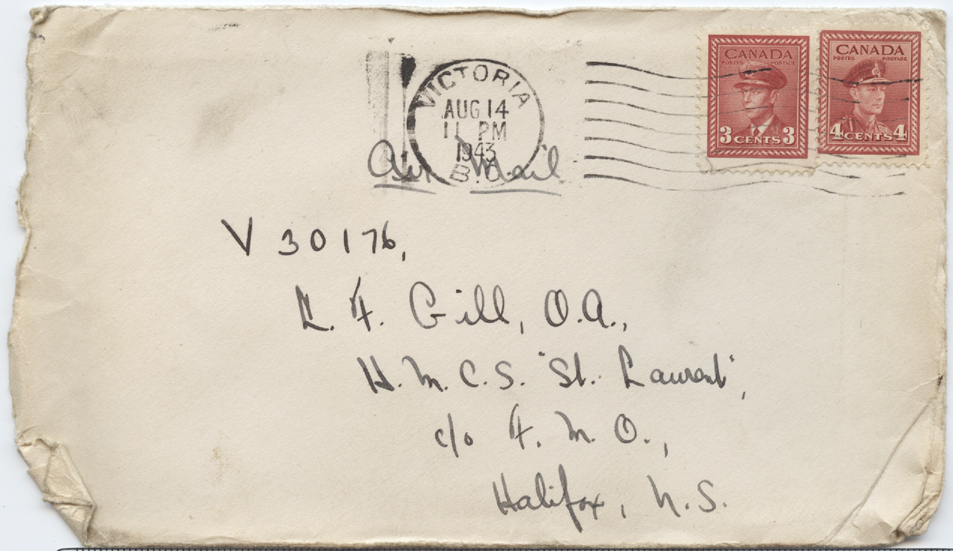 VICTORIA
AUG 14
11 PM
1943
B.C.
CANADA
POSTES POSTAGE
3 CENTS 3
CANADA
POSTES POSTAGE
4 CENTS 4
Air Mail
V 30176,
L. F. Gill, O.A.,
H.M.C.S. "St. Laurent",
c/o F.M.O.,
Halifax, N.S.